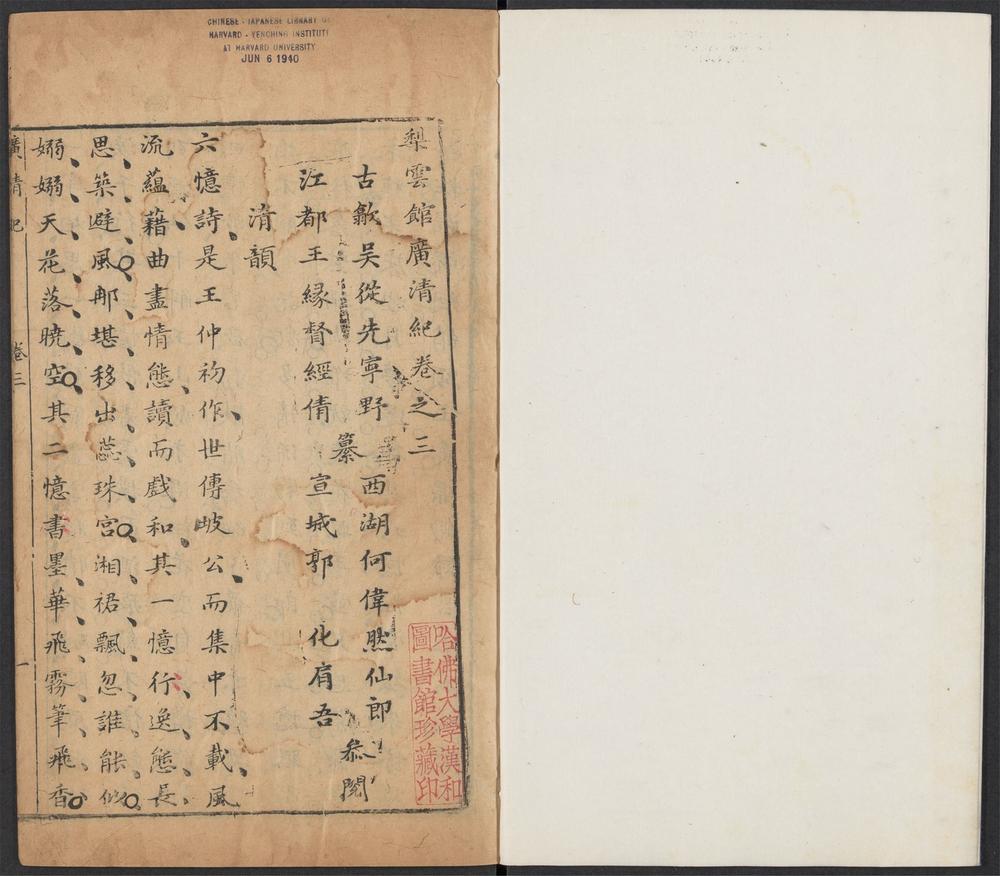 CHINESE - JAPANESE LIBRARY OF
HARVARD - YENCHING INSTITUTE
AT HARVARD UNIVERSITY
JUN 6 1940
梨雲館廣清紀卷之三
古歙吳從先寧野
西湖何偉然仙郎
江都王緣督經倩
纂
宣城郭化肩吾
叅閱
清韻
六憶詩是王仲初作世傳岐公而集中不載風
流蘊藉曲盡情態讀而戲和其一憶行逸態長
思築避風那堪移出蕊珠宮湘裙飄忽誰能似
嫋嫋天花落曉空其二憶書墨華飛霧筆飛香
廣清紀 卷三 一
哈佛大學漢和
圖書館珍藏印